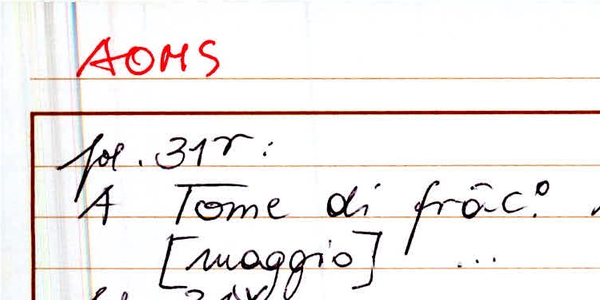 AOMS
fol. 31r:
A Tome di frāc.º
[maggio] ...